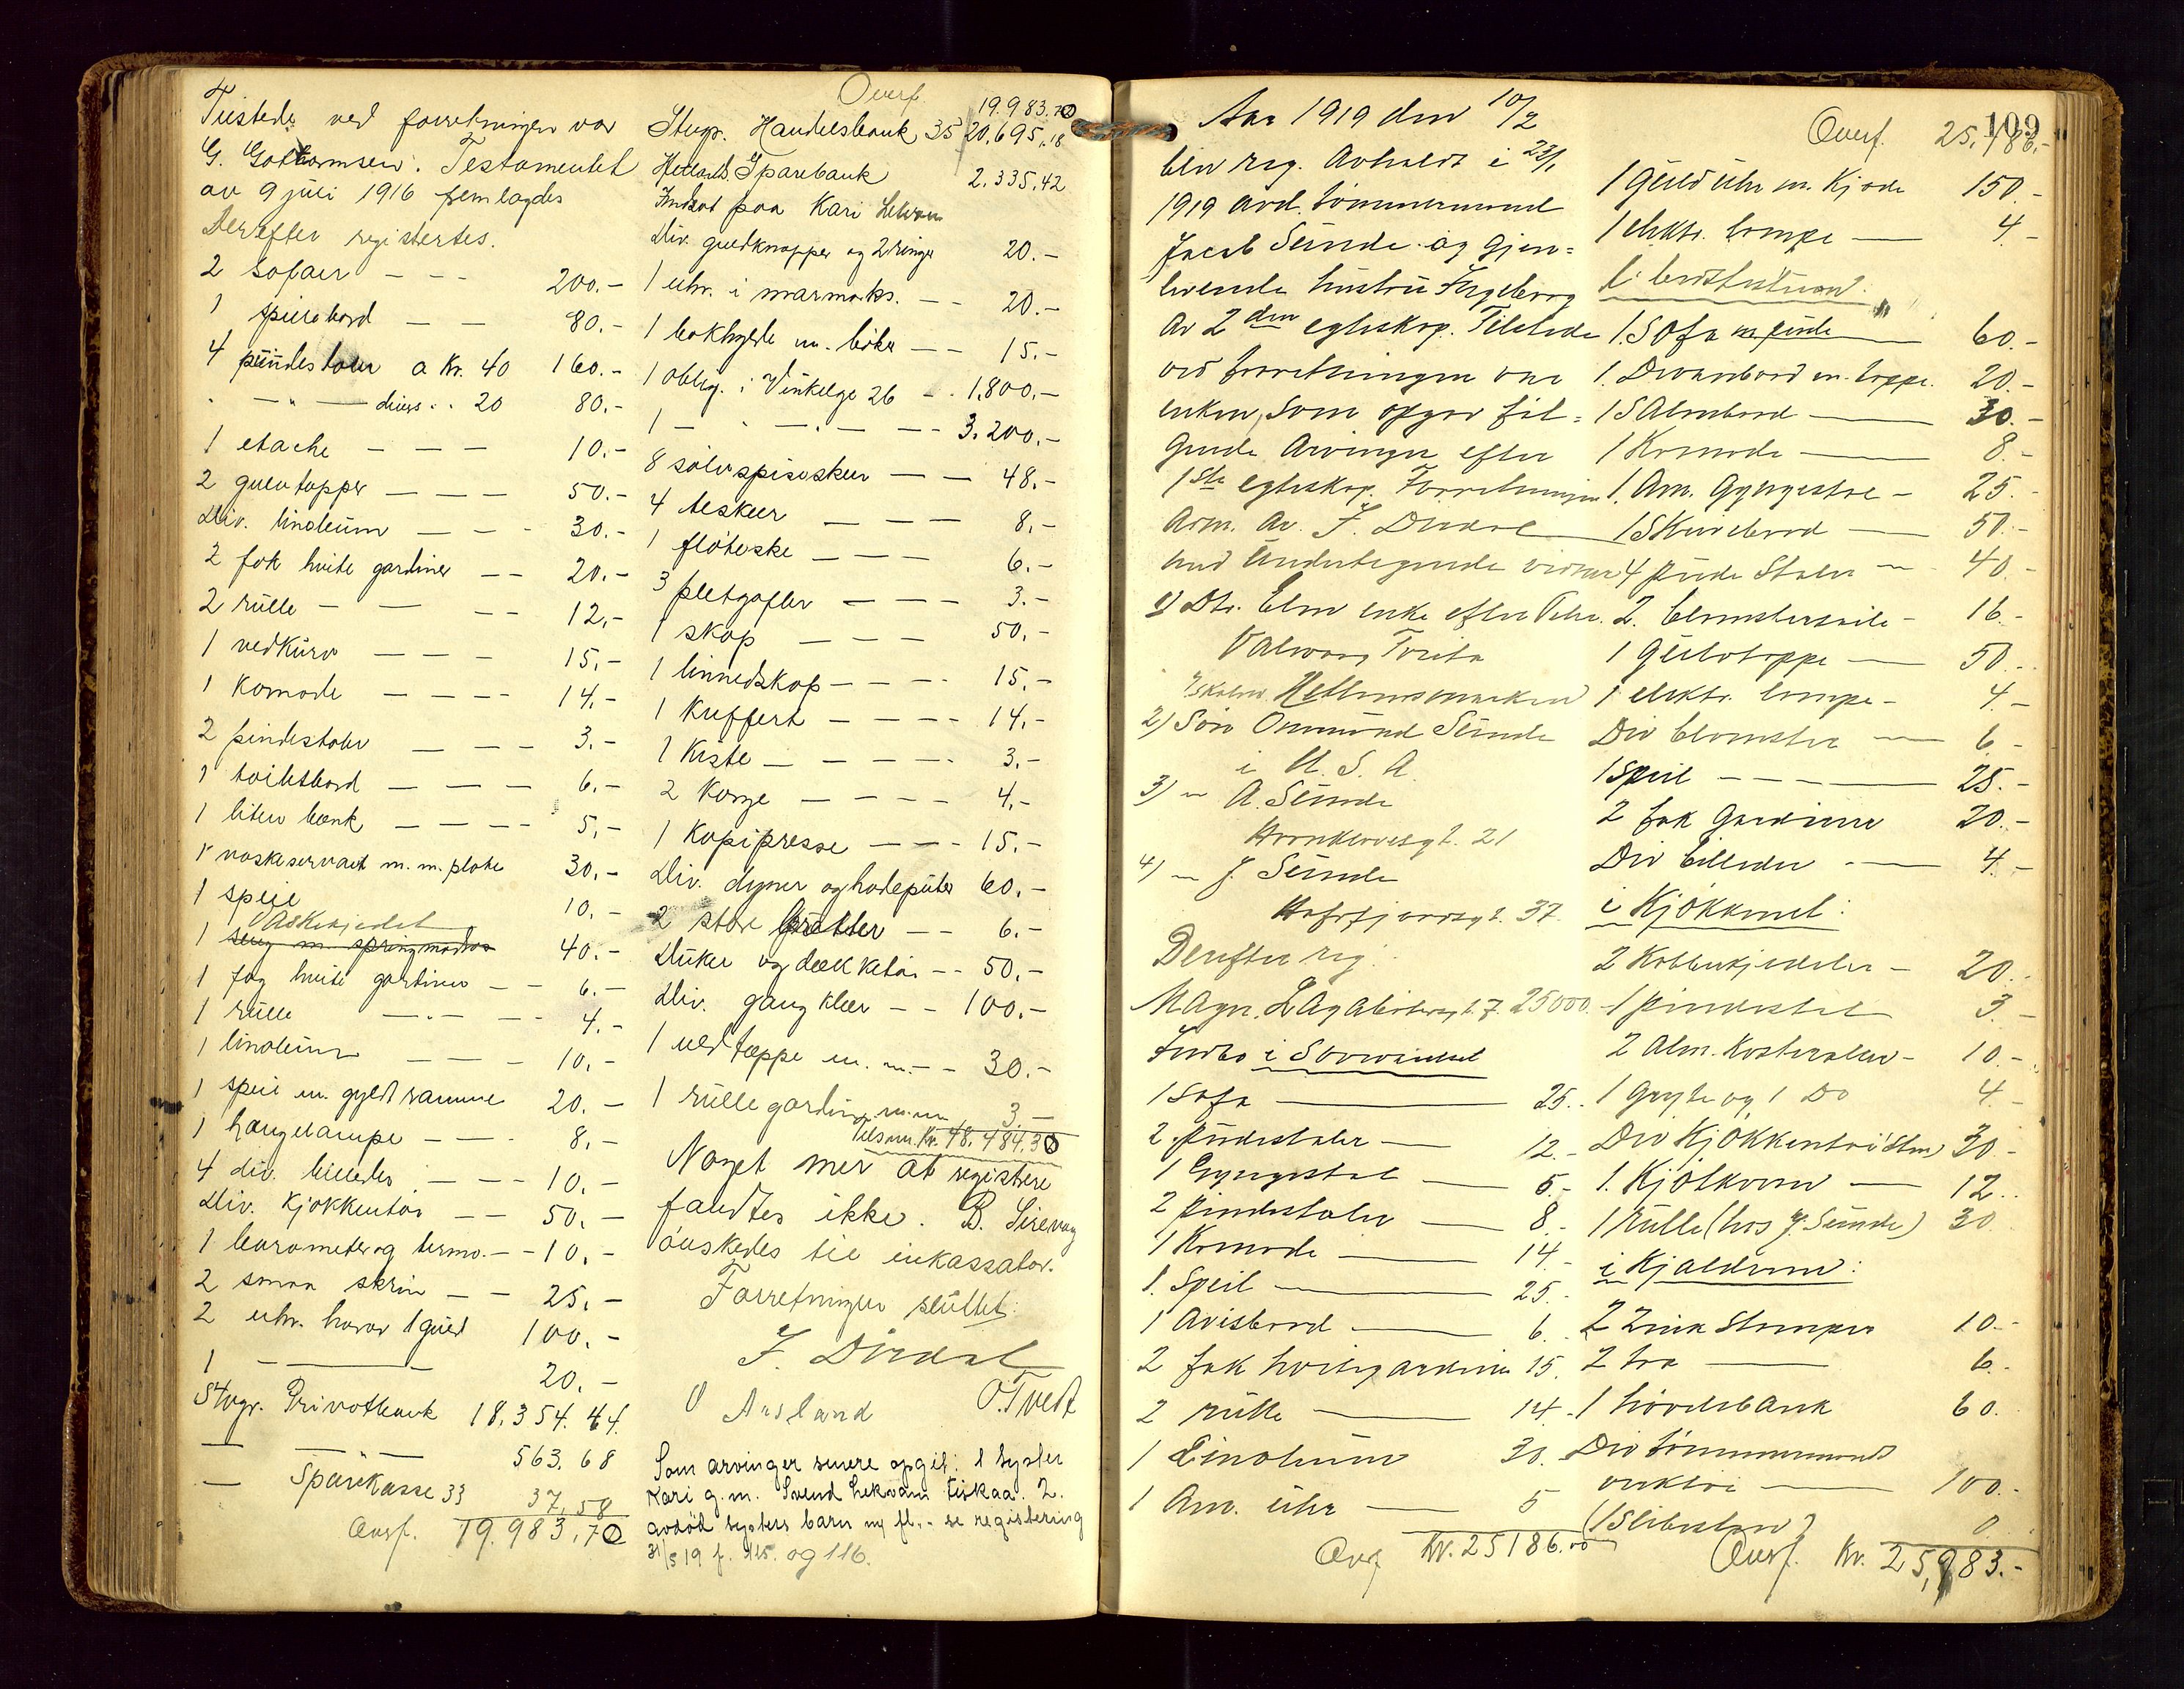 Tilstede ved forretningen var
G. Gotformsen. Testamentet
av 9 juli 1916 fremlagdes
Derefter registertes.
2 sofaer — — — 200.-
1 spisebord — — 80.-
4 pündestoler a Kr. 40 160.-
" — " — divers . . 20 80.-
1 etache — — — 10.-
2 gulvtepper — — — 50.-
Div. linoleum — — - 30.-
2 fak hvite gardiner — — 20.-
2 rülle — — — — 12.-
1 vedkürv — — — 15.-
1 komode — — — - 14.-
2 pindestoler — — — 3.-
1 toiletbord — — — 6.-
1 liten bænk — — — 5.-
1 vaskeservant m. m. plate 30.-
1 speil 10.-
Vaskekjedel
1 seng m. springmadras 40.-
1 fag hvite gardiner — — 6.-
1 rülle — . — — 4.-
1 linoleum — — — 10.-
1 speil m. gyldt ramme 20.-
1 hængelampe — — - 8.-
4 div. billeder — — - 10.-
Div. kjøkkentøi — — 50.-
1 barometer og termo. — - 10.-
2 smaa skrin — — 25.-
2 uhr. hvorav 1 guld 100.-
1 — — — 20.-
Stvgr. Privatbank 18.354.44.
— — " — 563.68
— Sparekasse 33 37.58
Overf. 19.983.70
Overf. 19.983.70
Stvgr. Handelsbank 35 20,695.18
Hetlands Sparebank 2.335.42
Indsat paa Kari Lekvam
Div. guldknapper og 2 ringe 20.-
1 uhr. i marmorks. — - 20.-
1 bokhylde m. bøker — — 15.-
1 oblig. i Vinkelge 26 — . 1.800.-
1 — " — . — — - 3.200.-
8 sølvspiseskeer — — 48.-
4 teskeer — — — 8.-
1 fløteske — — — 6.-
3 pletgafler — — — 3.-
1 skap — — — 50.-
1 linnedskap — — — - 15.-
1 Kuffert — — — - 14.-
1 Kiste — — — — - 3.-
2 Konge — — — - 4.-
1 Kopipresse — — - 15.-
Div. dyner og hodepüter 60.-
2 store — — 6.-
Düker og dækketøi — - 50.-
Div. gangklær — — 100.-
1 uldteppe m. m. — - 30.-
1 rüllegardin m.m 3 —
Tilsam. Kr. 48.484.30
Noget mer at registrere
fandtes ikke. B. Sirevaag
ønskedes til inkassator.
Forretningen slüttet:
J. Dirdal
O Aasland O. Tvedt
Som arvinger senere opgit: 1 syster
Kari g.m. Svend Lekvam Fiskaa. 2.
avdød systers barn og fl. - se registering
31/5 19 f. 115. og 116.
109
Aar 1919 den 10/2
blev reg. avholdt i 23/1
1919 avd. tømmermand
Jacob Sünde og gjen=
levende hustrü Ingeborg
av 2den egteskap. Tilstede
ved forretningen var
enken, som opgav føl=
gende Arvinger efter
1ste egteskap. Forretningen
adm. av J. Dirdal
med undertegnede vidner
1) Dtr. Elen enke efter Peter
Valvaag Torita
2) Søn Ommünd Sünde
i U. S. A.
3) — A. Sünde
Hornklovesgt. 21
4) — J. Sünde
Hafrsfjordsgt. 37
Derefter reg.
Magn. Lagabøtersgt. 7. 25000.-
Indbo i Sovværelset
1 Sofa — 25.-
2 Pudestoler — 12.-
1 Gyngestol — 5.-
2 Pindestoler — 8.-
1 Komode — 14.-
1. Speil — 25.-
1 Avisbord — 6.-
2 fak hvitegardiner 15.
2 rülle — 14.-
1 Linoleüm 30.
1 Am. ühr — 5
Overf Kr. 25186.00
Overf. 25.186.-
1 Güld ühr m. Kjæde 150.-
1 elektr. lampe — 4.-
1. Sofa m. püde 60.-
1. Divanbord m. teppe. 20.-
1 Salmebord — 30.-
1 Komode — 8.-
1. Am. Gyngestol — 25.-
1 Skrivebord — 50.-
4 püde Stoler — 40.-
2. blomstersøile — 16.-
1 Gülvteppe — 50.-
1 elektr. lampe — 4.-
Div blomster — 6.-
1 Speil — — — 25.-
2 fak Gardiner 20.-
Div billeder — 4.-
i Kjøkkenet:
2 Kobberkjedeler — 20.-
1 pindestol 3.-
2 Alm. — 10.-
1 Gryte og 1 Do 4.-
Div Kjøkkentøi 30.-
1. Kjøtkvern — 12..
1 Rülle (hos J. Sünde) 30
i Kjælderen:
2 Zink Stamper 10.-
2 tra — 6.-
1 høvelbank 60.
Div tømmermands
verktøi — 100.-
(1 Slibesten) 0
Overf. Kr. 25,983.-